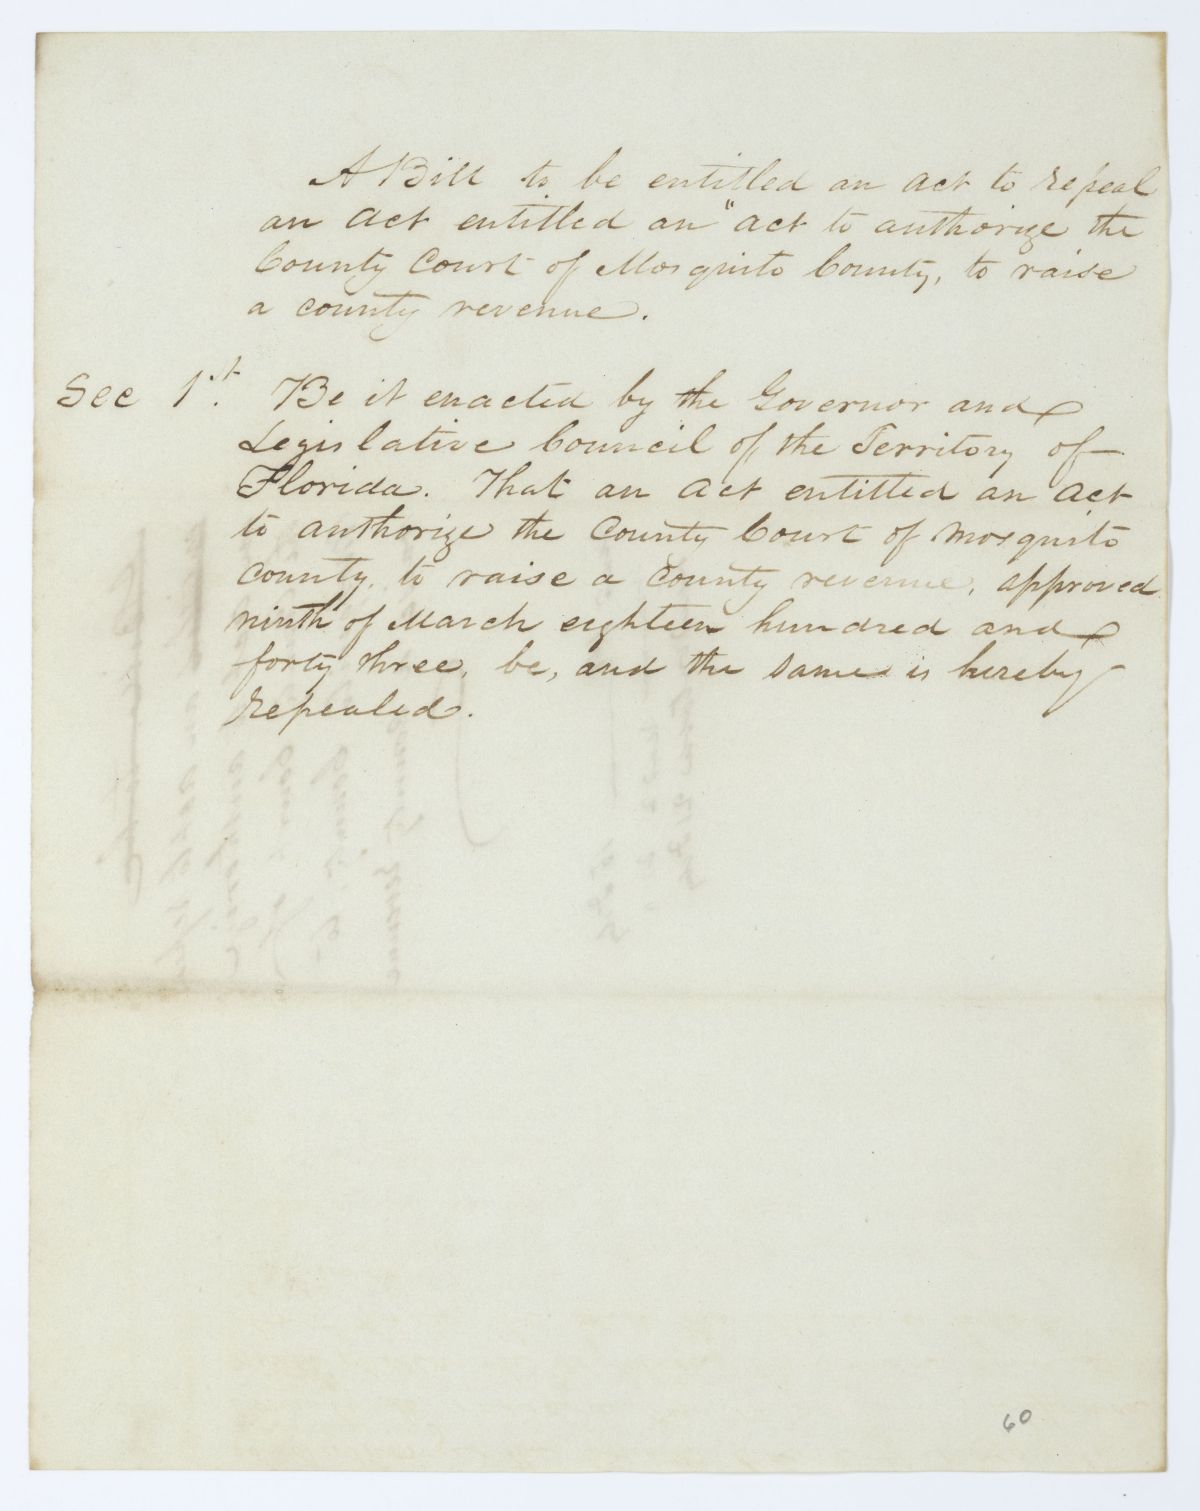 A Bill to be entitled an act to repeal
an act entitled an "act to authorize the
County Court of Mosquito County, to raise
a county revenue.
Sec 1st. Be it enacted by the Governor and
Legislative Council of the Territory of
Florida. That an act entitled an act
to authorize the County Court of Mosquito
county, to raise a county revenue, approved
ninth of March eighteen hundred and
forty three, be, and the same is hereby
repealed.
60